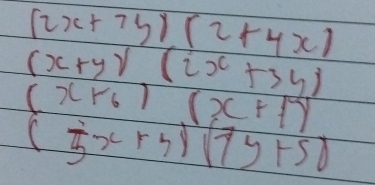 (2x + 7y) (2 + 4x)
(x + y) (2x + 3y)
(x + 6) (x + 1)
(x + y) (7y + 5)